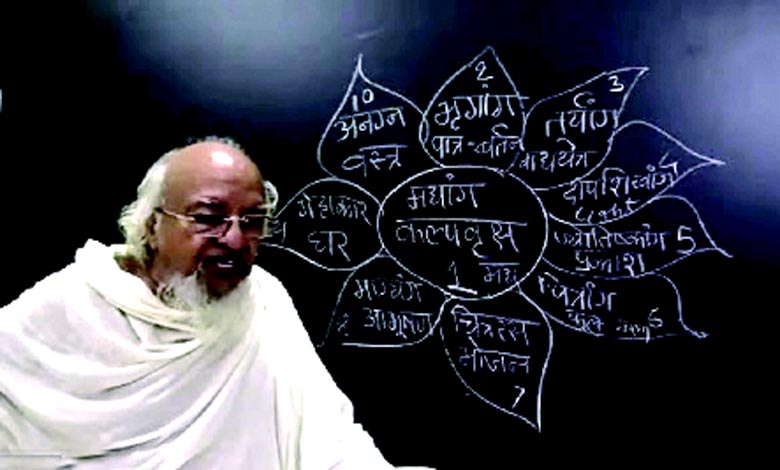 मद्यांग
कल्पवृक्ष
1 मद्य
2
भृगांग
पात्र-बर्तन
3
तर्यांग
वाद्ययंत्र
4
दीपशिखांग
ज्योतिष्कांग 5
प्रकाश
चित्रांग
6
चित्ररस
भोजन
7
मण्यंग
आभूषण
गेहाकार
घर
10
अनग्न
वस्त्र